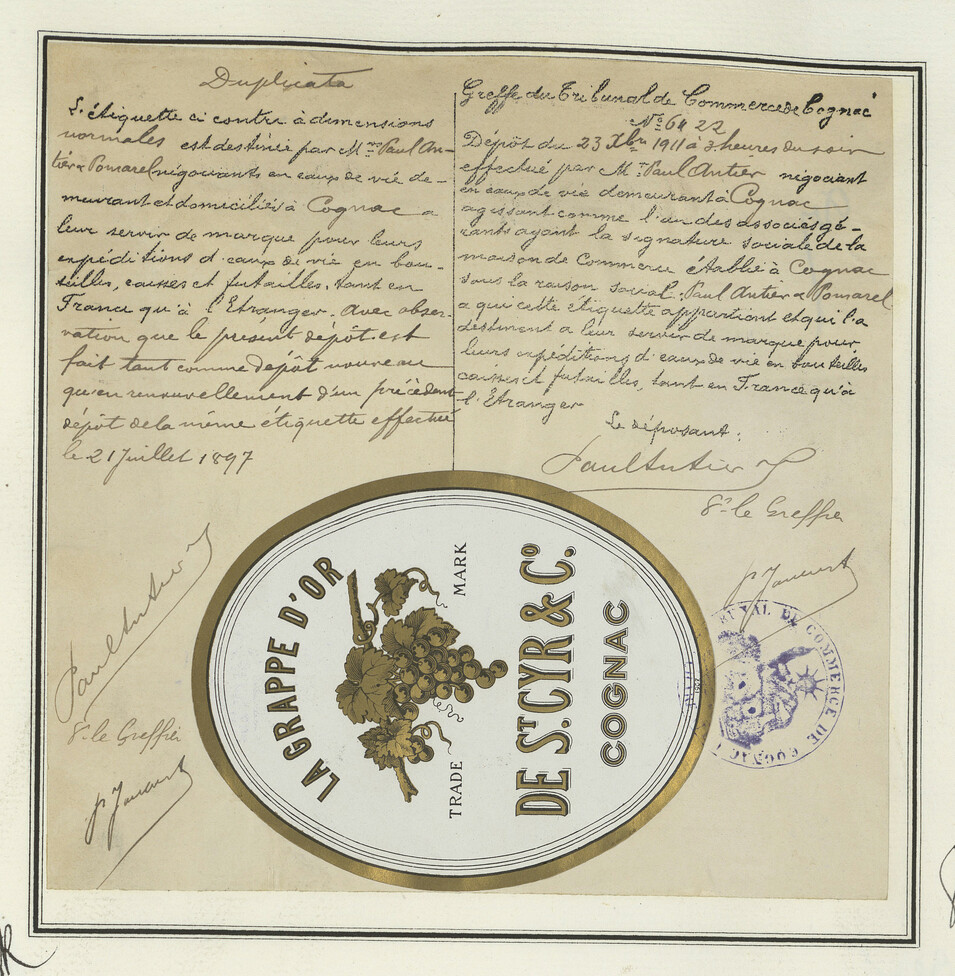 Duplicata
L'étiquette ci contre à dimensions
normales est destinée par Mrs Paul An-
tier & Pomarel négociants en eaux de vie de-
meurant et domiciliés à Cognac a
leur servir de marque pour leurs
expéditions d'eaux de vie en bou-
teilles, caisses et futailles, tant en
France qu'à l'Etranger. Avec obser-
vation que le présent dépôt est
fait tant comme dépôt nouveau
qu'en renouvellement d'un précédent
dépôt de la même étiquette effectué
le 21 Juillet 1897
Paul Antier
Gr. le Greffier
Greffe du Tribunal de Commerce de Cognac
No 6422
Dépôt du 23 Xbre 1911 à 3 heures du soir
effectué par Mr Paul Antier négociant
en eaux de vie demeurant à Cognac
agissant comme l'un des associés gé-
rants ayant la signature sociale de la
maison de Commerce établie à Cognac
sous la raison social: Paul Antier & Pomarel
a qui cette étiquette appartient et qui l'a
destinent a leur servir de marque pour
leurs expéditions d'eaux de vie en bouteilles
caisses et futailles, tant en France qu'à
l'Etranger
Le déposant:
Paul Antier
Gr. le Greffier
LA GRAPPE D'OR
TRADE MARK
DE ST. CYR & Co.
COGNAC
TRIBUNAL DE COMMERCE DE COGNAC